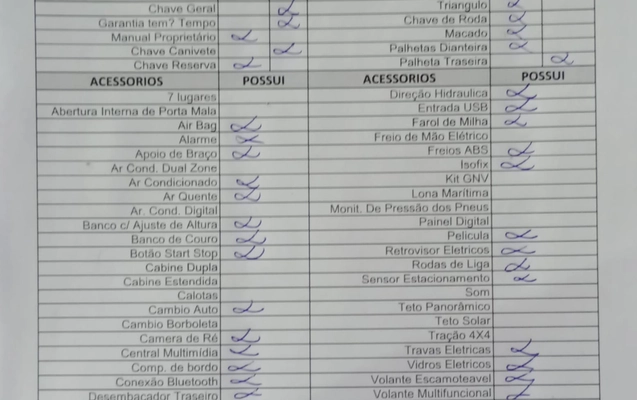 Chave Geral
Triangulo
Garantia tem? Tempo
Chave de Roda
Manual Proprietário
Macado
Chave Canivete
Palhetas Dianteira
Chave Reserva
Palheta Traseira
ACESSORIOS POSSUI ACESSORIOS POSSUI
7 lugares Direção Hidraulica
Abertura Interna de Porta Mala Entrada USB
Air Bag Farol de Milha
Alarme Freio de Mão Elétrico
Apoio de Braço Freios ABS
Ar Cond. Dual Zone Isofix
Ar Condicionado Kit GNV
Ar Quente Lona Marítima
Ar. Cond. Digital Monit. De Pressão dos Pneus
Banco c/ Ajuste de Altura Painel Digital
Banco de Couro Pelicula
Botão Start Stop Retrovisor Eletricos
Cabine Dupla Rodas de Liga
Cabine Estendida Sensor Estacionamento
Calotas Som
Cambio Auto Teto Panorâmico
Cambio Borboleta Teto Solar
Camera de Ré Tração 4X4
Central Multimídia Travas Eletricas
Comp. de bordo Vidros Eletricos
Conexão Bluetooth Volante Escamoteavel
Desembaçador Traseiro Volante Multifuncional